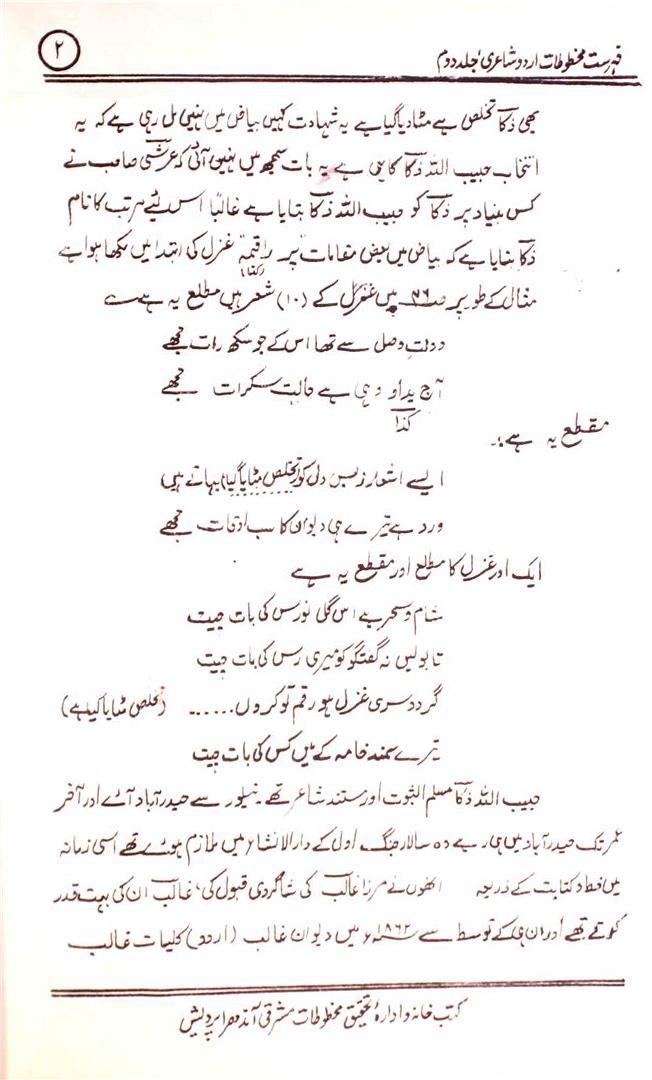 فہرست مخطوطات اردو شاعری، جلد دوم
۲
بھی ذکاؔ تخلص ہے مٹا دیا گیا ہے یہ شہادت کہیں بیاض میں نہیں مل رہی ہے کہ یہ
انتخاب حبیب اللہ ذکاؔ کا ہی ہے یہ بات سمجھ میں نہیں آئی کہ عرشی صاحب نے
کس بنیاد پر ذکاؔ کو حبیب اللہ ذکاؔ بتایا ہے غالباً اس لئے مرتب کا نام
ذکاؔ بتایا ہے کہ بیاض میں بعض مقامات پر راقمہ غزل کی ابتدا میں لکھا ہوا ہے
مثال کے طور پر ص۲۶ میں غزل کے (۱۰) شعر ہیں مطلع یہ ہے
دولتِ وصل سے تھا اس کے جو سکھ رات مجھے
آج یداو وہی ہے حالت سکرات مجھے
کذا
مقطع یہ ہے :۔
ایسے اشعار زبس دل کو (تخلص مٹایا گیا) بہاتے ہیں
ورد ہے تیرے ہی دیوان کا سب اوقات مجھے
ایک اور غزل کا مطلع اور مقطع یہ ہے
شام و سحر ہے اس گلِ نورس کی بات چیت
تا بولیں نہ گفتگو کو میری رس کی بات چیت
گر دوسری غزل ہو رقم تو کروں ...... (تخلص مٹایا گیا ہے)
تیرے سمند خامہ کے میں کس کی بات چیت
حبیب اللہ ذکاؔ مسلم الثبوت اور مستند شاعر تھے۔ نیلور سے حیدرآباد آئے اور آخر
عمر تک حیدرآباد میں ہی رہے وہ سالار جنگ اول کے دارالانشاء میں ملازم ہوئے تھے اسی زمانہ
میں خط و کتابت کے ذریعہ انھوں نے مرزا غالبؔ کی شاگردی قبول کی، غالبؔ ان کی بہت قدر
کرتے تھے اور ان ہی کے توسط سے ۱۸۶۲ء میں دیوان غالب (اردو) کلیات غالب
کتب خانہ و ادارۂ تحقیق مخطوطات مشرقی آندھرا پردیش